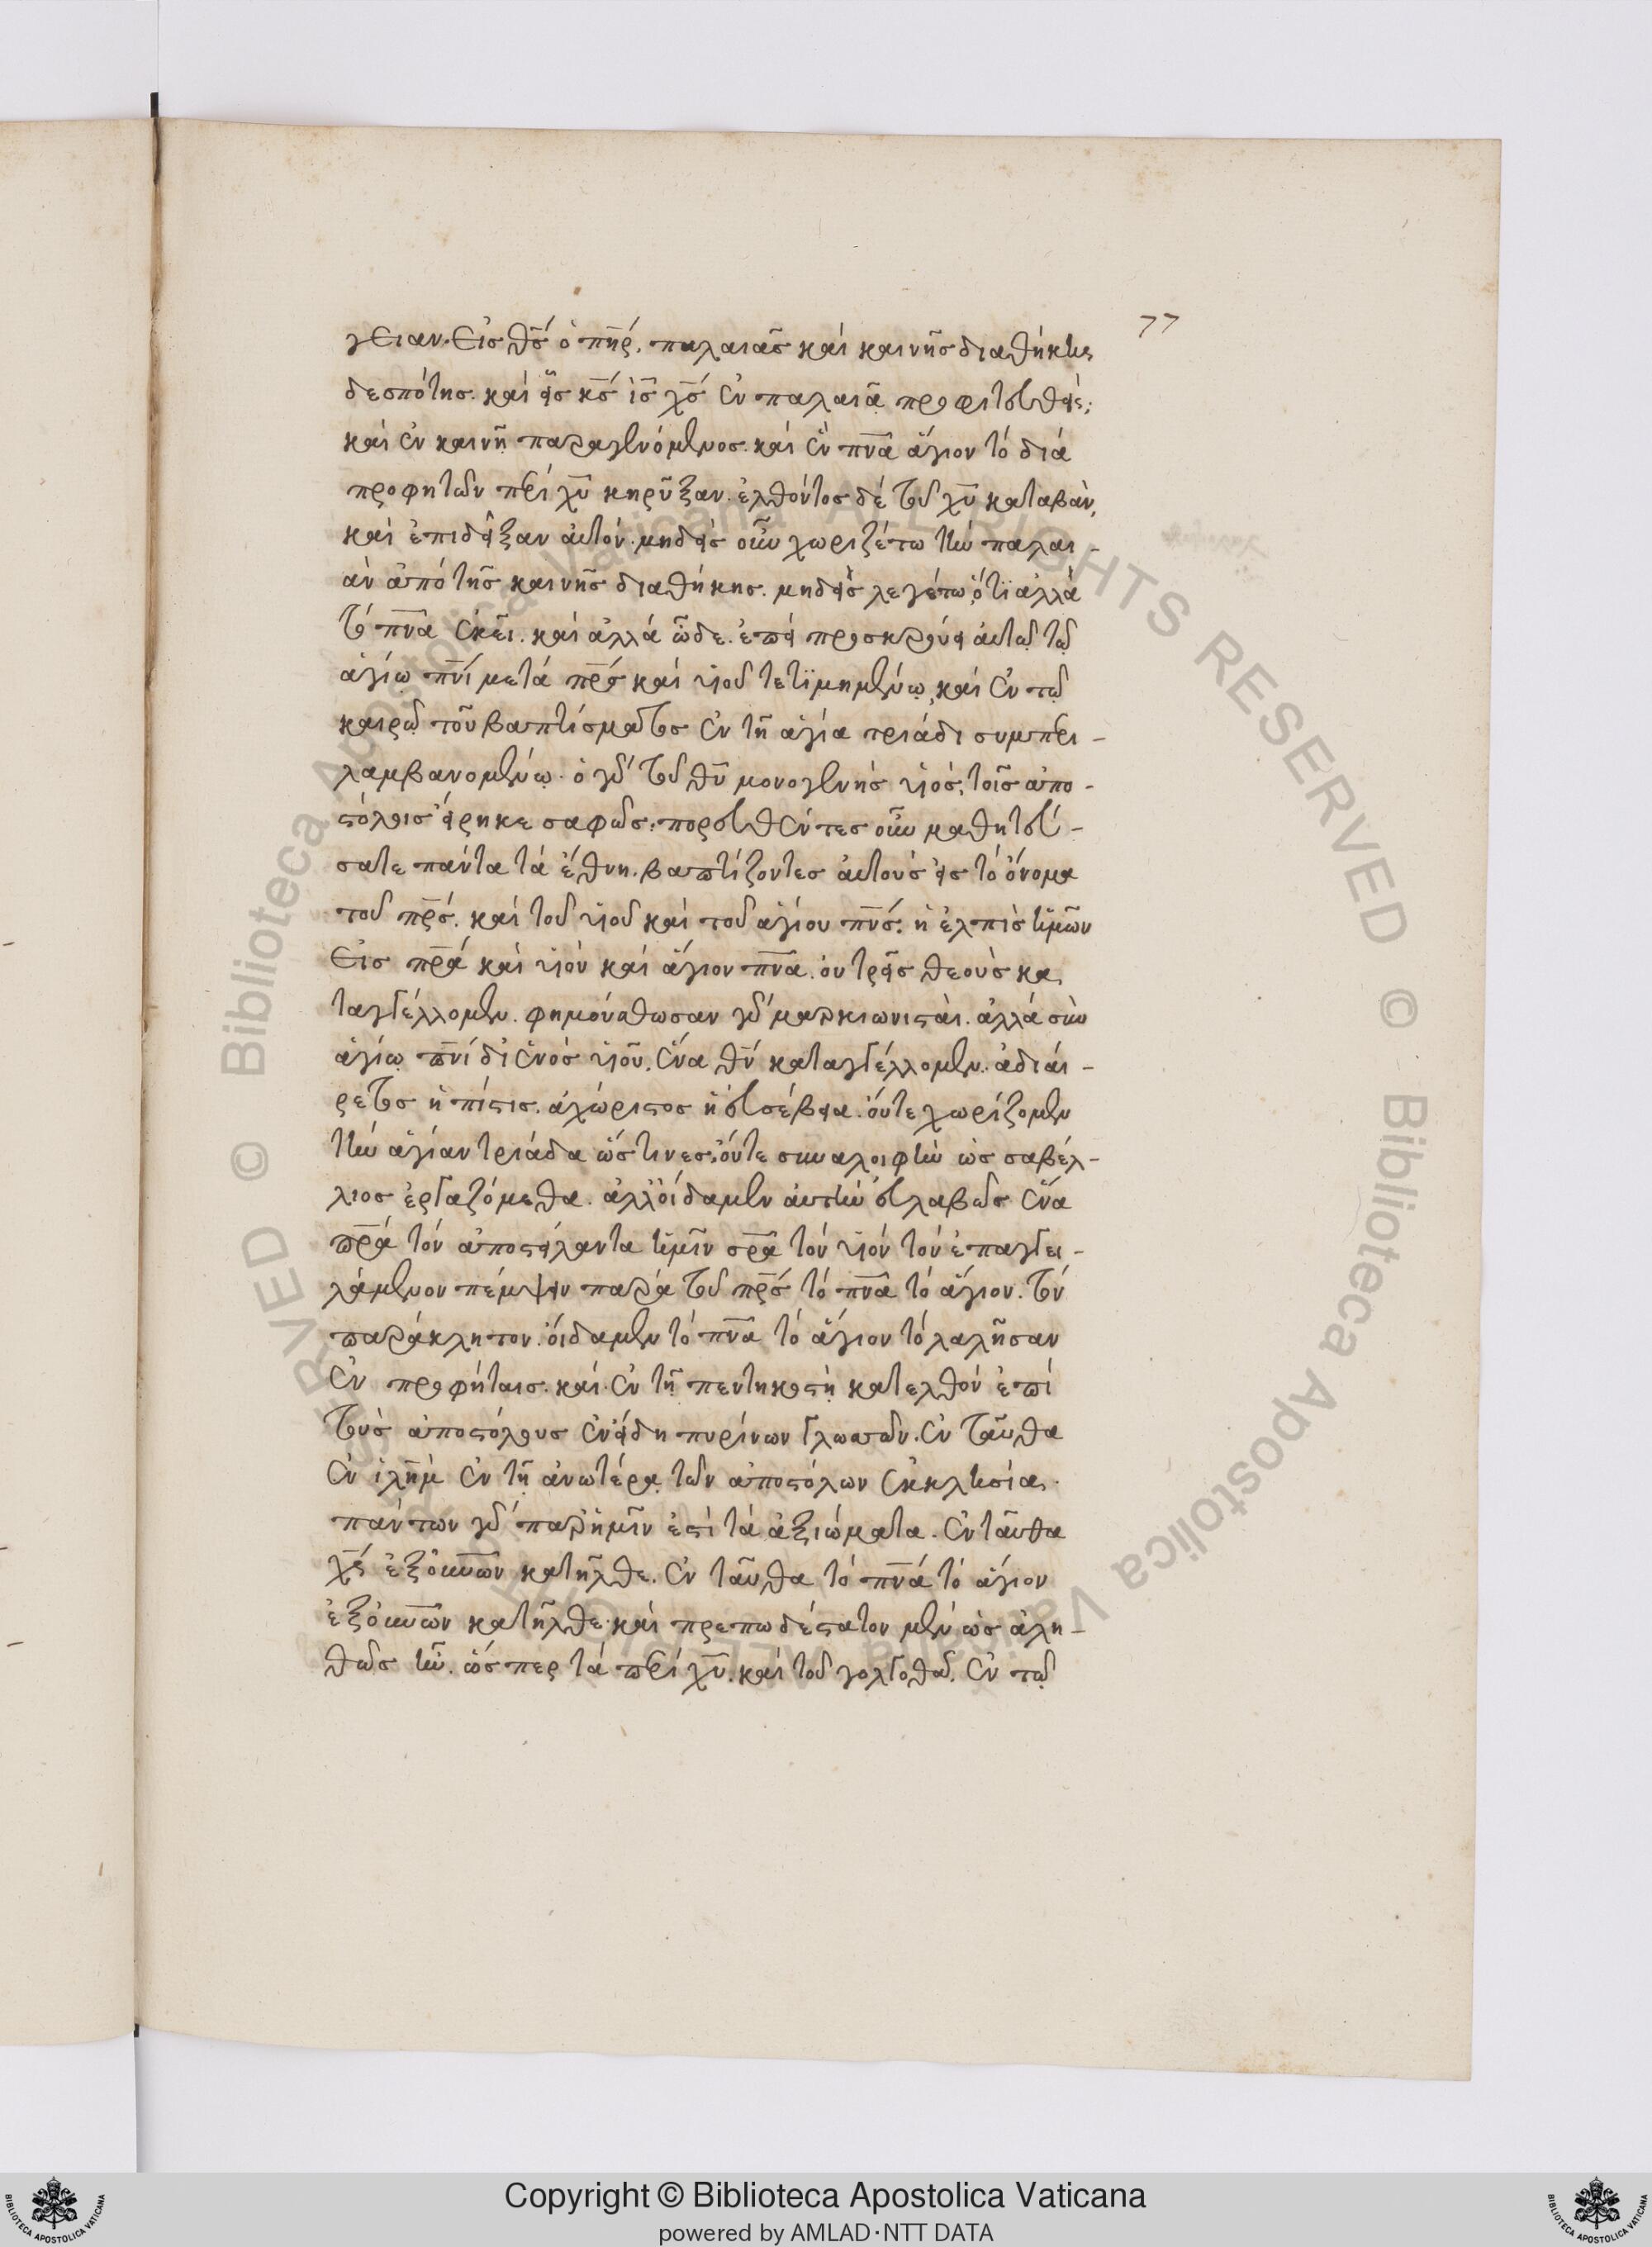 77
γειαν. εἷσ θ̅ς̅ ὁ π̅η̅ρ̅. παλαιᾶσ καὶ καινῆσ διαθήκης
δεσπότησ. καὶ εἷσ κ̅ς̅ ἰ̅ς̅ χ̅ς̅ ἐν παλαιᾷ προφητευθεὶς,
καὶ ἐν καινῇ παραγενόμενοσ. καὶ ἓν π̅ν̅α̅ ἅγιον τὸ διὰ
προφητῶν περὶ χ̅υ̅ κηρῦξαν. ἐλθόντοσ δὲ τοῦ χ̅υ̅ καταβὰν,
καὶ ἐπιδεῖξαν αὐτόν. μηδεὶσ οὖν χωριζέτω τὴν παλαι-
ὰν ἀπὸ τῆσ καινῆσ διαθήκησ. μηδεὶσ λεγέτω ὅτϊ ἀλλὰ
τὸ π̅ν̅α̅ ἐκεῖ. καὶ ἀλλὰ ὧδε. ἐπεὶ προσκρούει αὐτῷ τῷ
ἁγίῳ π̅ν̅ι̅ μετὰ π̅ρ̅ς̅ καὶ υἱοῦ τετϊμημένῳ, καὶ ἐν τῷ
καιρῷ τοῦ βαπτίσματοσ ἐν τῇ ἁγία τριάδι συμπερι-
λαμβανομένῳ. ὁ γὰρ τοῦ θ̅υ̅ μονογενὴσ υἱόσ, τοῖσ ἀπο-
στόλοισ εἴρηκε σαφῶσ. πορευθέντεσ οὖν μαθητεύ-
σατε πάντα τὰ ἔθνη. βαπτίζοντεσ αὐτοὺσ εἰσ τὸ ὄνομα
τοῦ π̅ρ̅ς̅. καὶ τοῦ υἱοῦ καὶ τοῦ ἁγίου π̅ν̅ς̅. ἡ ἐλπὶσ ἡμῶν
εἰσ π̅ρ̅α̅ καὶ υἱὸν καὶ ἅγιον π̅ν̅α̅. οὐ τρεῖσ θεοὺσ κα
ταγγέλλομεν. φημούσθωσαν γὰρ μαρκιωνισταὶ. ἀλλὰ σὺν
ἁγίῳ π̅ν̅ι̅ δι ἑνὸσ υἱοῦ. ἕνα θ̅ν̅ καταγγέλλομεν. ἀδιαί-
ρετοσ ἡ πίστισ. ἀχώριστοσ ἡ εὐσέβεια. οὔτε χωρίζομεν
τὴν ἁγίαν τριάδα ὥσ τινεσ. οὔτε συναλοιφὴν ὡσ σαβέλ-
λιοσ ἐργαζόμεθα. ἀλλ οἴδαμεν αὐτὴν εὐλαβῶσ ἕνα
π̅ρ̅α̅ τὸν ἀποστείλαντα ἡμῖν σ̅ρ̅α̅ τὸν υἱόν τὸν ἐπαγγει-
λάμενον πέμψειν παρὰ τοῦ π̅ρ̅ς̅ τὸ π̅ν̅α̅ τὸ ἅγιον. τὸν
παράκλητον. οἴδαμεν τὸ π̅ν̅α̅ τὸ ἅγιον τὸ λαλῆσαν
ἐν προφήταισ. καὶ ἐν τῇ πεντηκοστῇ κατελθὸν ἐπὶ
τοὺσ ἀποστόλουσ ἐν εἴδη πυρίνων γλωσσῶν. ἐν ταῦθα
ἐν ἱ̅λ̅η̅μ̅ ἐν τῇ ἀνωτέρᾳ τῶν ἀποστόλων ἐκκλησίᾳ.
πάντων γὰρ παρ ἡμῖν ἐστὶ τὰ ἀξιώματα. ἐν ταῦθα
χ̅ς̅ ἐξ ο̅υ̅ν̅ω̅ν̅ κατῆλθε. ἐν ταῦθα τὸ π̅ν̅α̅ τὸ ἅγιον
ἐξ ο̅υ̅ν̅ω̅ν̅ κατῆλθε. καὶ πρεπωδέστατον μὲν ὡσ ἀλη-
θῶσ ἦν. ὥσπερ τὰ περὶ χ̅υ̅. καὶ τοῦ γολγοθᾶ. ἐν τῷ